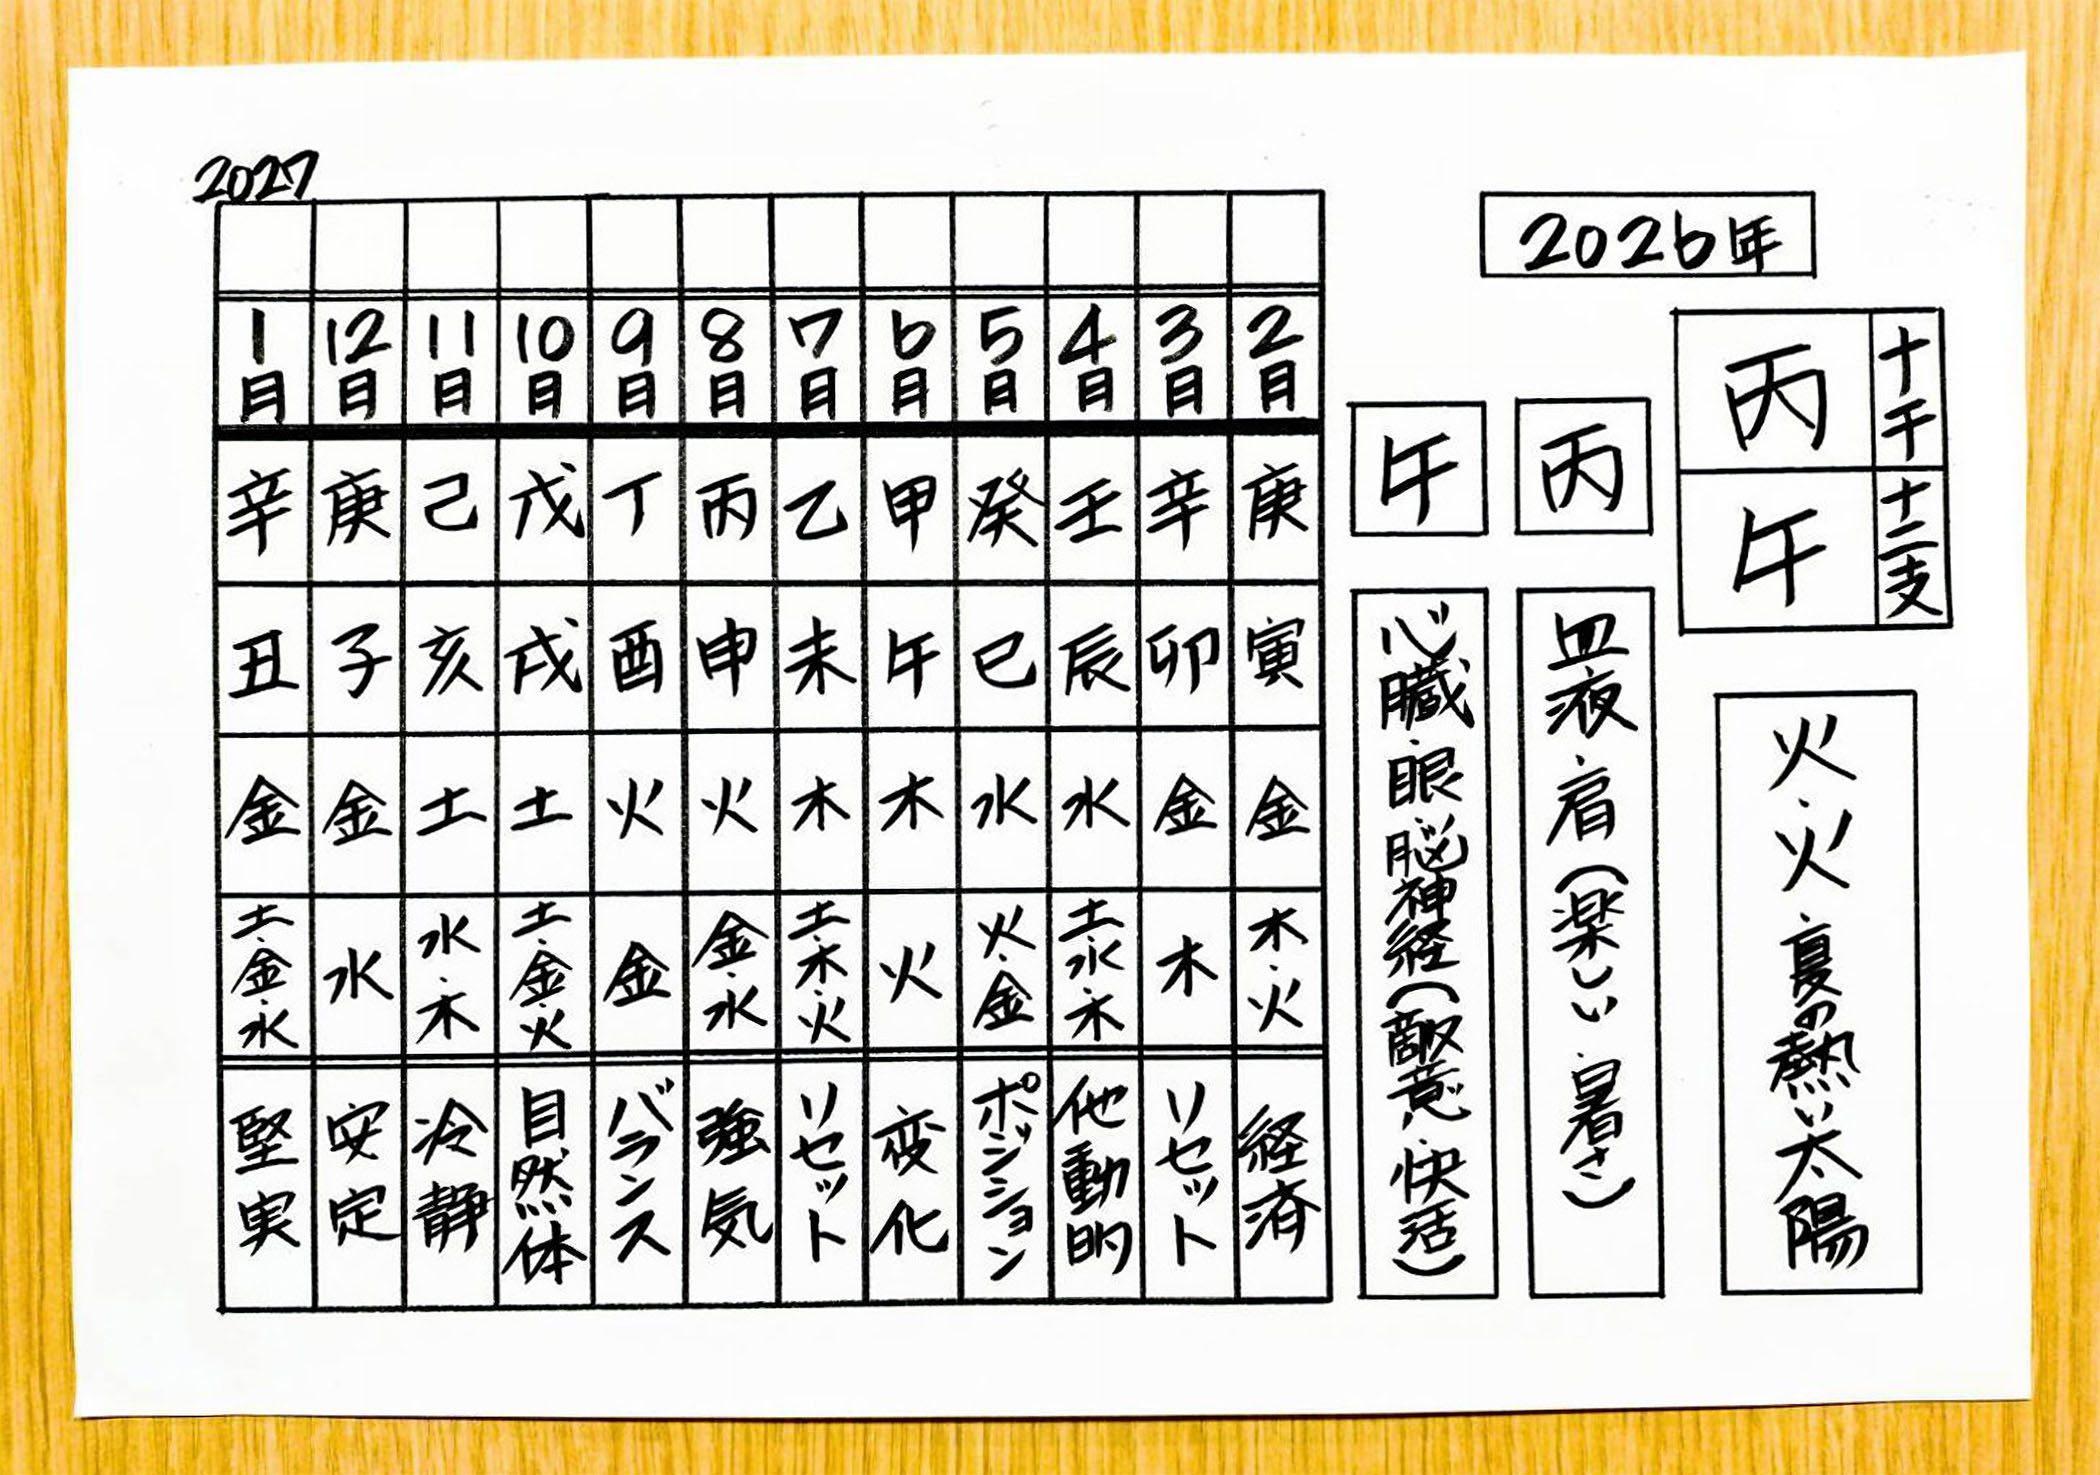 2026年
十干
丙
十二支
午
火・火・夏の熱い太陽
丙
血液・肩(楽しい・暑さ)
午
心臓・眼・脳神経(敵意・快活)
2027
2月 庚 寅 金 木・火 経済
3月 辛 卯 金 木 リセット
4月 壬 辰 水 土・水・木 他動的
5月 癸 巳 水 火・金 ポジション
6月 甲 午 木 火 変化
7月 乙 未 木 土・木・火 リセット
8月 丙 申 火 金・水 強気
9月 丁 酉 火 金 バランス
10月 戊 戌 土 土・金・火 自然体
11月 己 亥 土 水・木 冷静
12月 庚 子 金 水 安定
1月 辛 丑 金 土・金・水 堅実